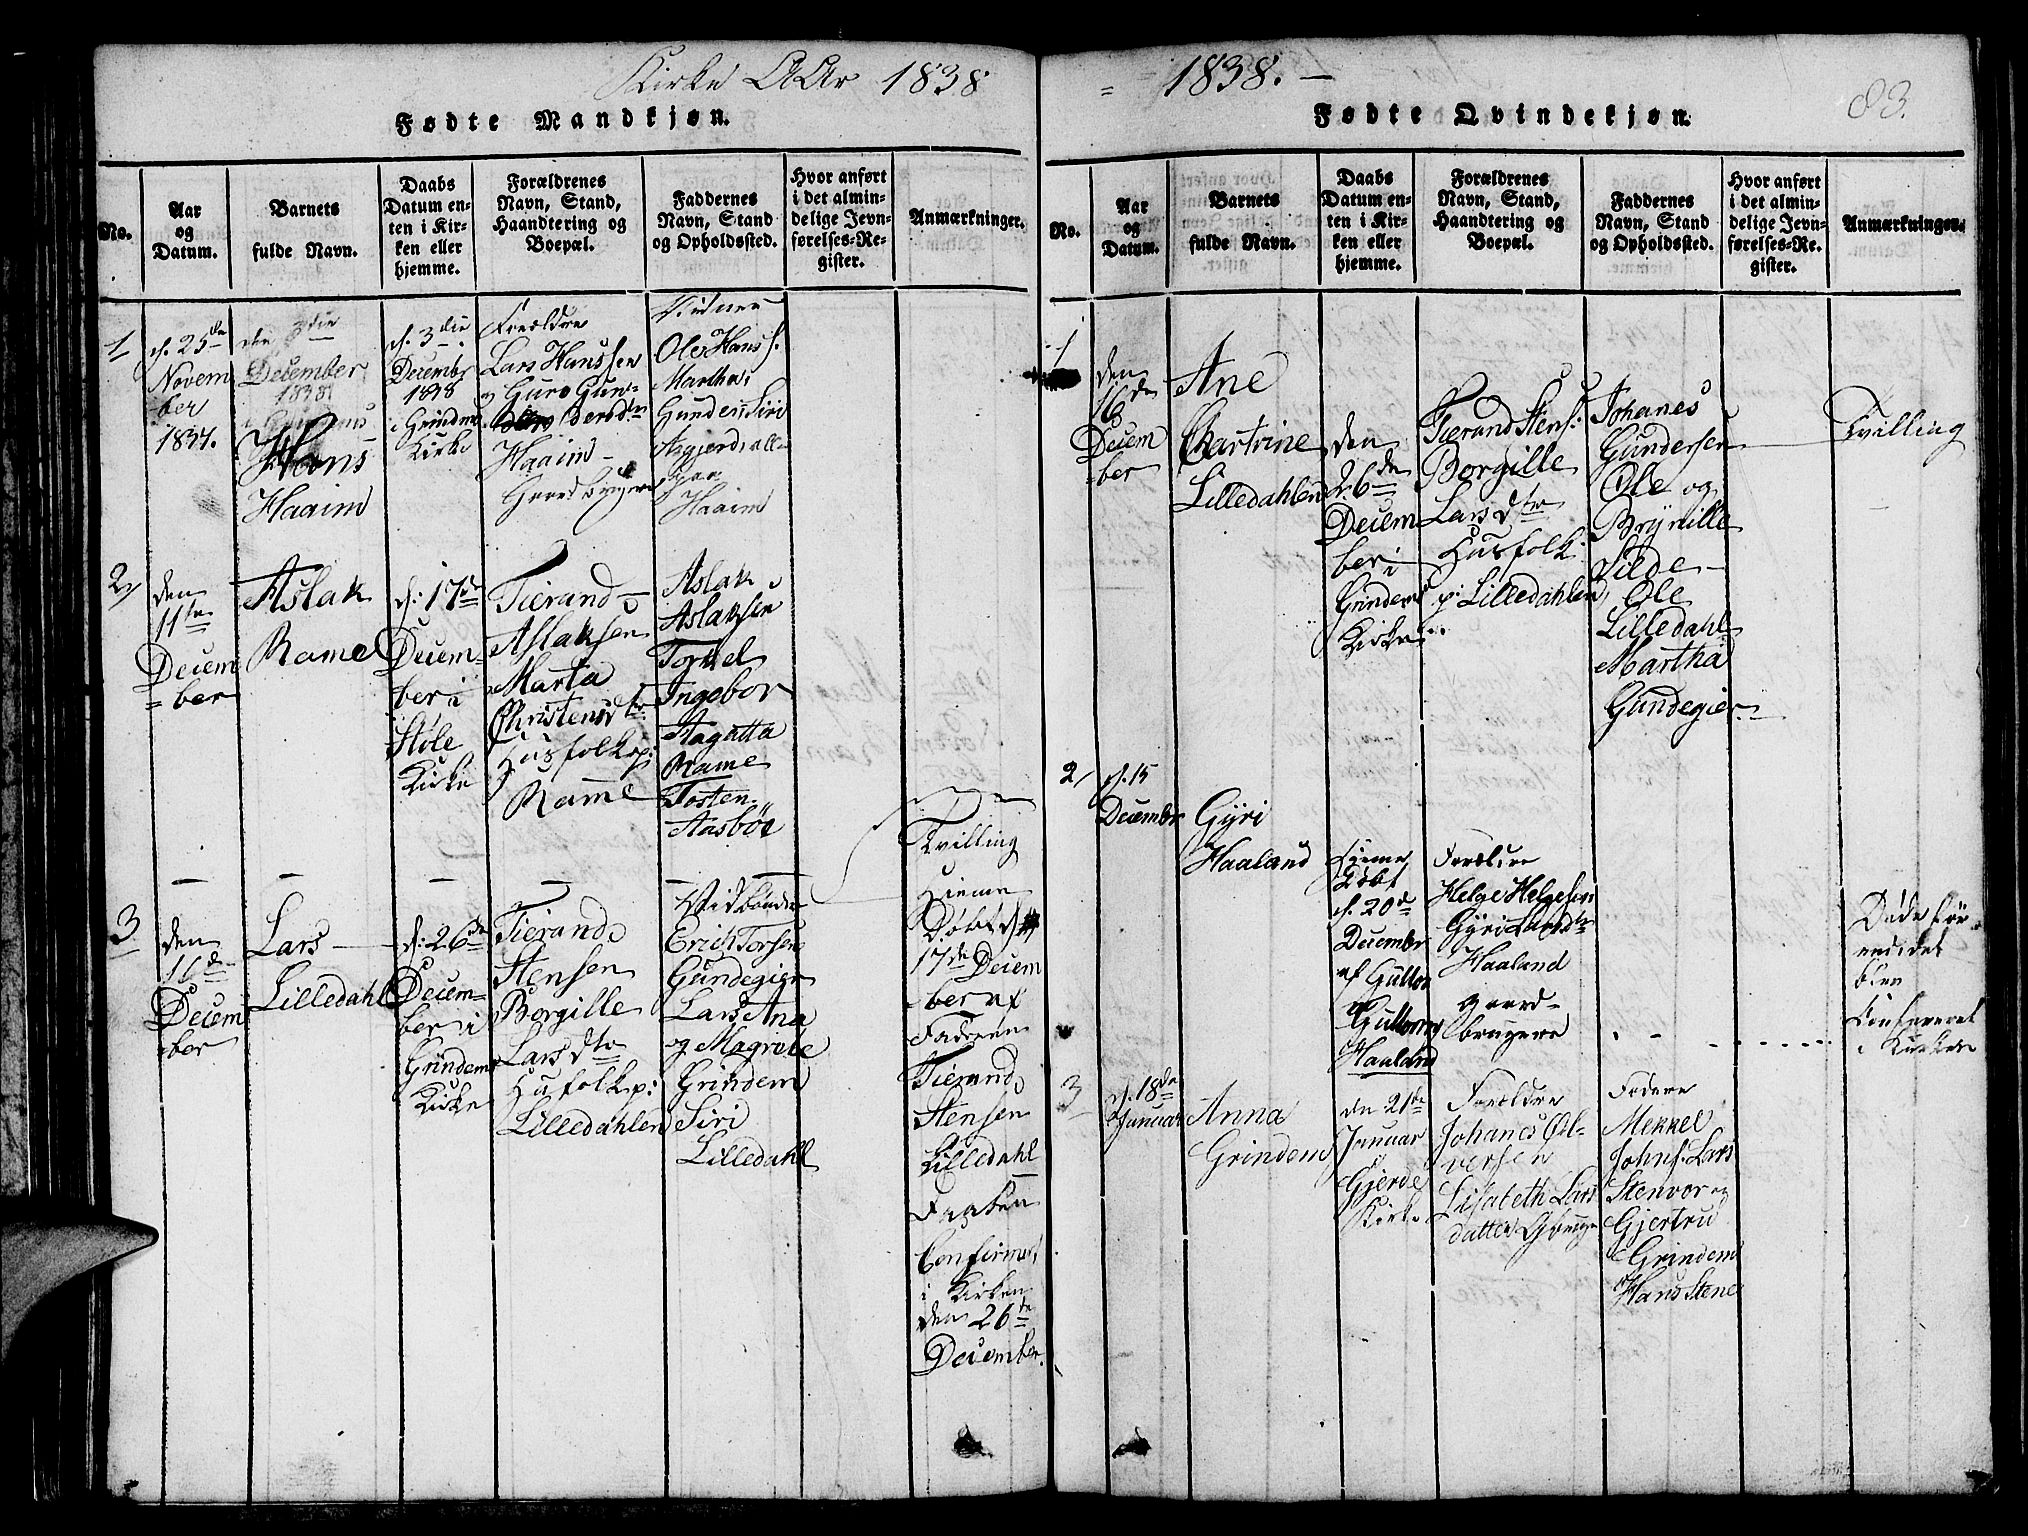 Kirke Aar 1838
Fødte Mandkjøn.
No.
Aar
og
Datum.
Barnets
fulde Navn.
Daabs
Datum en-
ten i Kir-
ken eller
hjemme.
Forældrenes
Navn, Stand,
Haandtering og
Boepæl.
Faddernes
Navn, Stand
og Opholdssted.
Hvor anført
i det almin-
delige Jevn-
førelses-Re-
gister.
Anmærkninger.
1
d. 25de
Novem
ber
1837.
den 3die
December
1838
Hans
Haaim
d. 3die
Decembr
1838
i Grindem
Kirke
Forældre
Lars Hanssen
og Guro Gun-
Haaim
Ole Hanss.
Martha
Gunden Siri
Asgjerd alle
paa
Haaim
2
den
11te
Decem
ber
Aslak
Rame
d: 17de
Decem-
ber i
Støle
Kirke
Tierand
Aslaksen
Marta
Christensdtr
Husfolk p:
Rame
Aslak
Aslaksen
Torkel
Ingebor
Aagatta
Rame
Tosten
Aasbøe
3
den
16de
Decem
ber
Lars
Lilledahl
d: 26de
Decem-
ber i
Grindem
Kirke
Tierand
Stensen
Borgille
Larsdtr
Husfolk p:
Lilledahlen
Erich Torsen
Gundegier
Lars Ana
og Magrete
Grindem
Siri
Lilledahl
Tvilling
Hieme
Døbt d
17de Decem
ber af
Faderen
Tierand
Stensen
Lilledahl
Confirmet
i Kirken
den 26de
December.
= 1838. —
83.
Fødte Qvindekjøn.
No.
Aar
og
Datum.
Barnets
fulde Navn.
Daabs
Datum en-
ten i Kir-
ken eller
hjemme.
Forældrenes
Navn, Stand,
Haandtering og
Boepæl.
Faddernes
Navn, Stand
og Opholdssted.
Hvor anført
i det almin-
delige Jevn-
førelses-Re-
gister.
Anmærkninger.
1
den
16de
Decem
ber
Ane
Chartrine
Lilledahlen
den
26de
Decem
ber i
Grindem
Kirke
Tierand Stens:
Borgille
Larsdtr
Husfolk
p: Lilledahlen
Johanes
Gundersen
Ole og
Brynille
Silde
Ole
Lilledahl
Martha
Gundegier
Tvilling
2
d. 15
Decembr
Gyri
Haaland
Hieme
Døbt
d. 20de
Decembr
af Guttorm
Guttorms
Haaland
Forældre
Helge Helgesen
Gyri Larsdtr
Haaland
gaard-
brugere
Døde før
end det
blev
Confirmeret
i Kirken
3
d. 18de
Januar
Anna
Grindem
den 21de
Januar
Gjerde
Kirke
Forældre
Johanes Øl-
versen
Lisabeth Lars
datter
Fadere
Mekkel
Johns. Lars
Stenvor og
Gjertru
Grindem
Hans Stene